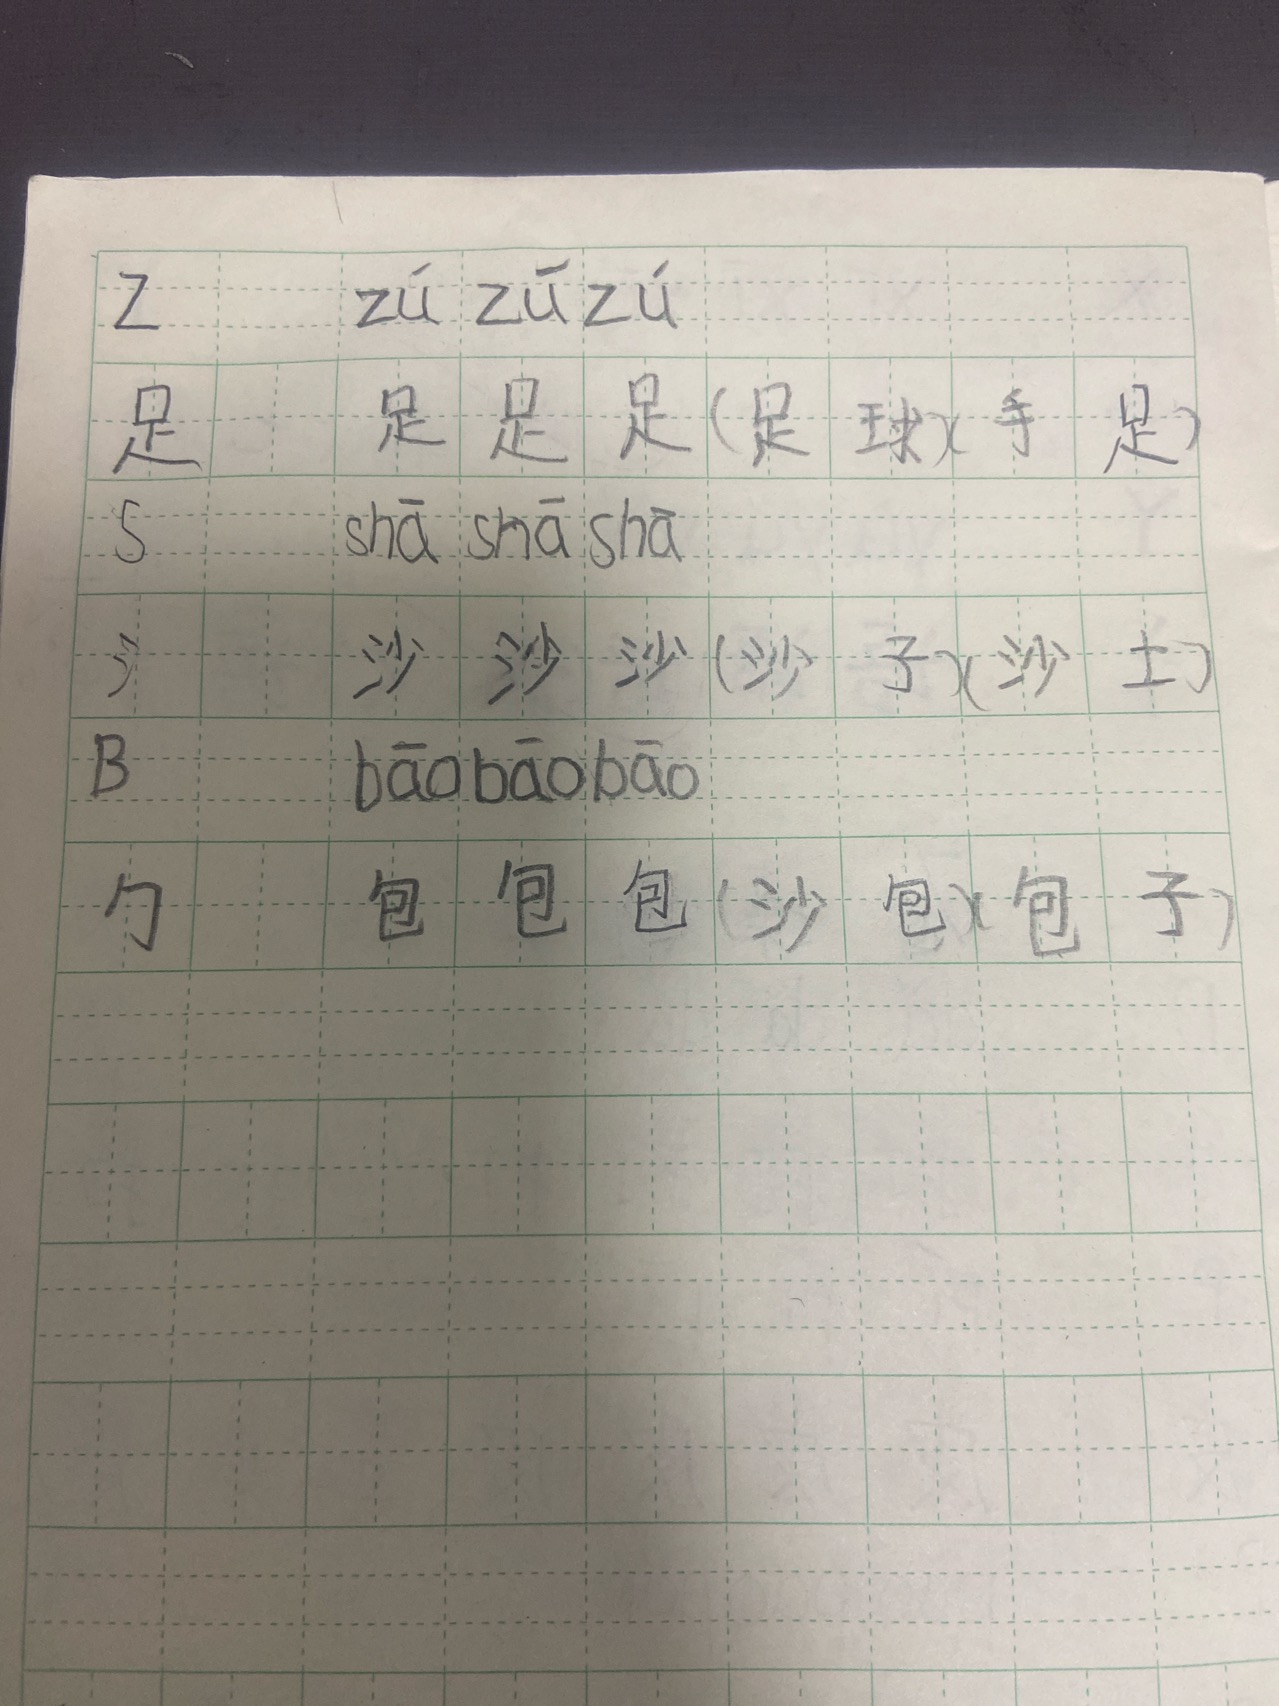 Z zú zú zú
足 足 足 足 (足球)(手足)
S shā shā shā
氵 沙 沙 沙 (沙子)(沙土)
B bāo bāo bāo
勹 包 包 包 (沙包)(包子)